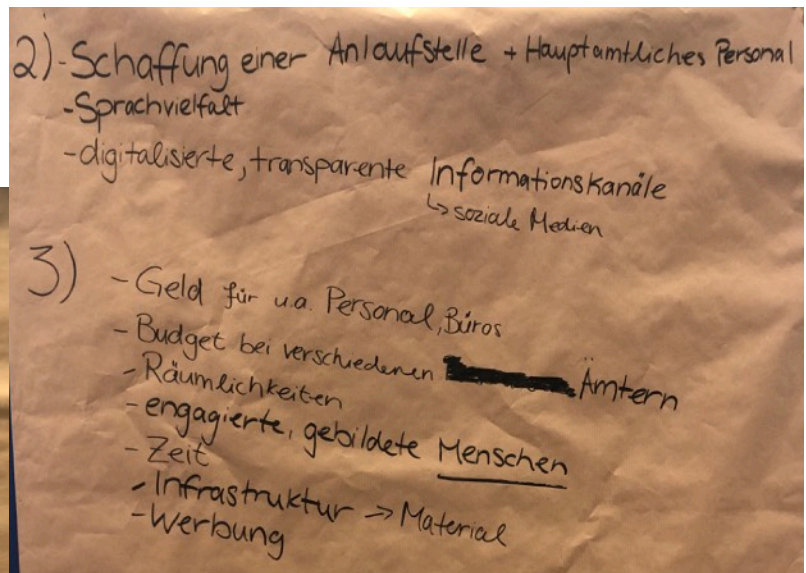 2) - Schaffung einer Anlaufstelle + Hauptamtliches Personal
- Sprachvielfalt
- digitalisierte, transparente Informationskanäle
↳ soziale Medien
3) - Geld für u.a. Personal, Büros
- Budget bei verschiedenen Ämtern
- Räumlichkeiten
- engagierte, gebildete Menschen
- Zeit
- Infrastruktur → Material
- Werbung